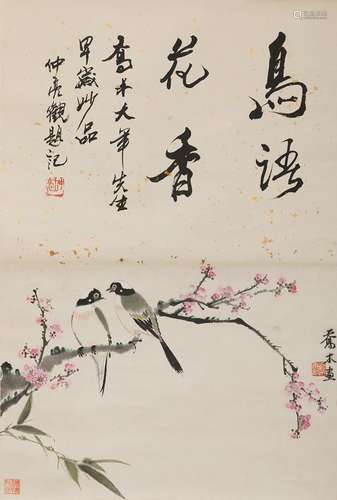 鳥語
花香
喬木大筆先生
早歲妙品
仲彥觀題記
喬木畫